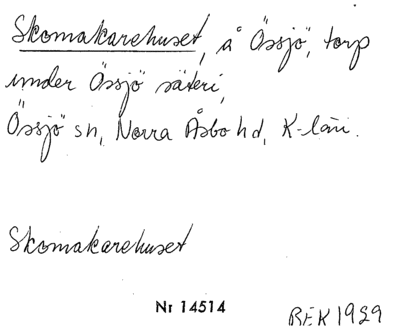 Skomakarehuset, å Össjö, torp
under Össjö säteri,
Össjö sn, Norra Åsbo hd, K-län.
Skomakarehuset
Nr 14514
REK 1929